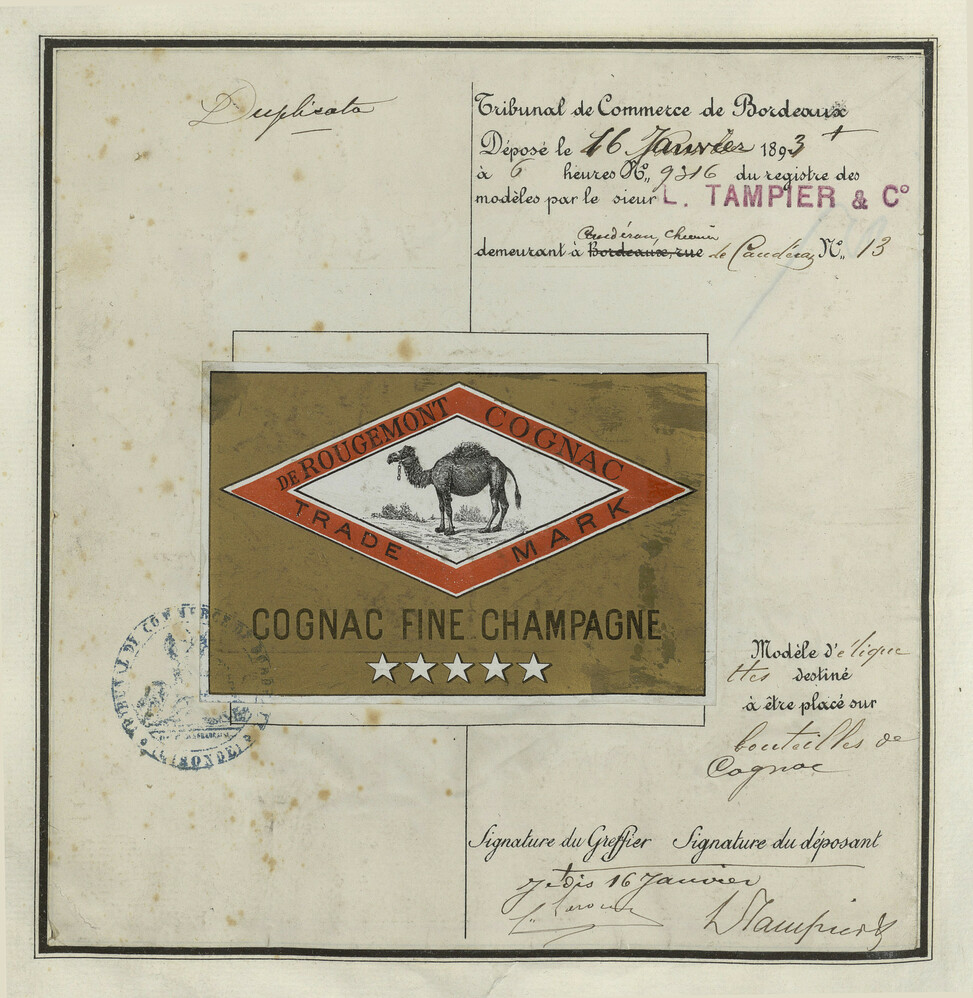 Duplicata
Tribunal de Commerce de Bordeaux
Déposé le 16 Janvier 1893
à 6 heures N° 9316 du registre des
modèles par le sieur L. TAMPIER & C°
Caudéran, Chemin
demeurant à Bordeaux, rue de Caudéran N° 13
DE ROUGEMONT COGNAC
TRADE MARK
COGNAC FINE CHAMPAGNE
TRIBUNAL DE COMMERCE DE BORDEAUX
(GIRONDE)
Modèle d'étique
ttes destiné
à être placé sur
bouteilles de
Cognac
Signature du Greffier Signature du déposant
16 Janvier
L Tampier &